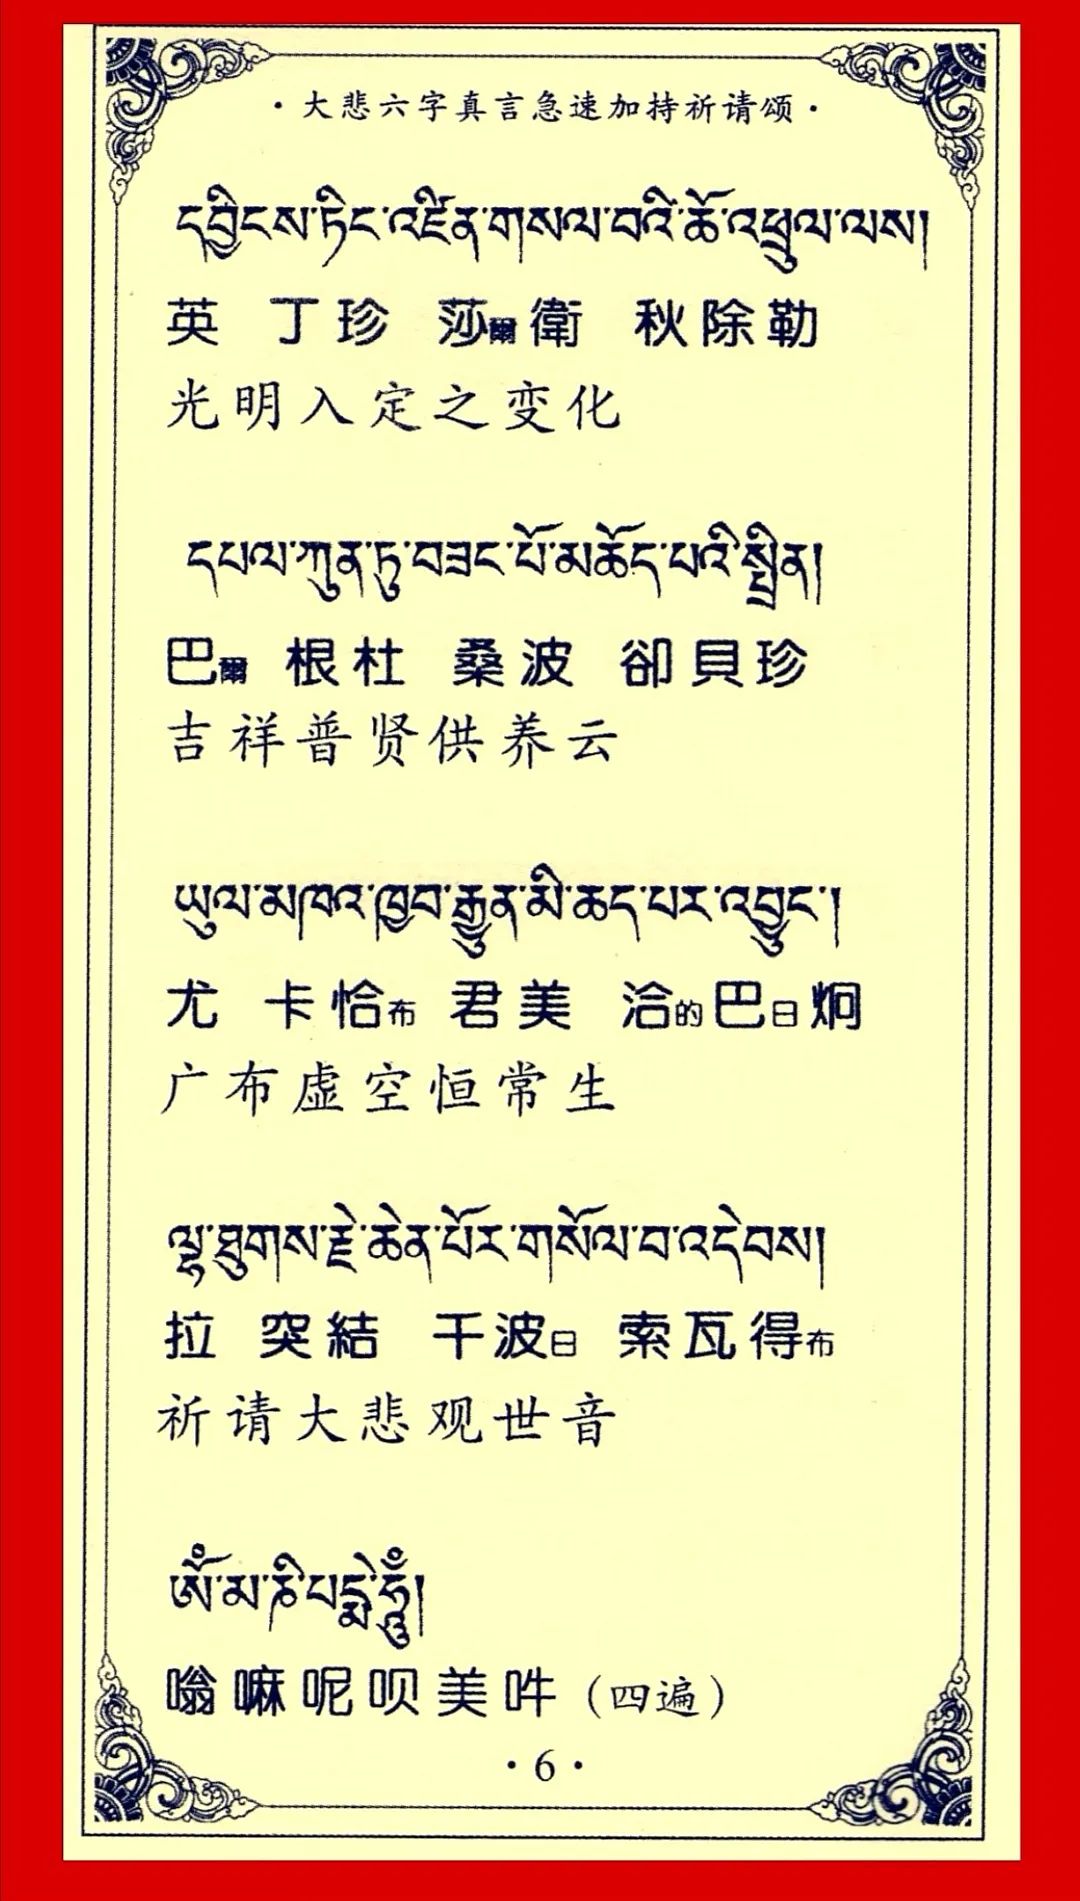 ·大悲六字真言急速加持祈请颂·
དབྱིངས་ཏིང་འཛིན་གསལ་བའི་ཆོ་འཕྲུལ་ལས།
英 丁珍 莎爾衛 秋除勒
光明入定之变化
དཔལ་ཀུན་ཏུ་བཟང་པོ་མཆོད་པའི་སྤྲིན།
巴爾 根杜 桑波 卻貝珍
吉祥普贤供养云
ཡུལ་མཁའ་ཁྱབ་རྒྱུན་མི་ཆད་པར་འབྱུང་།
尤 卡恰布 君美 洽的巴日炯
广布虚空恒常生
ལྷ་ཐུགས་རྗེ་ཆེན་པོར་གསོལ་བ་འདེབས།
拉 突結 千波日 索瓦得布
祈请大悲观世音
ༀ་མ་ཎི་པདྨེ་ཧཱུྃ།
嗡嘛呢呗美吽（四遍）
·6·